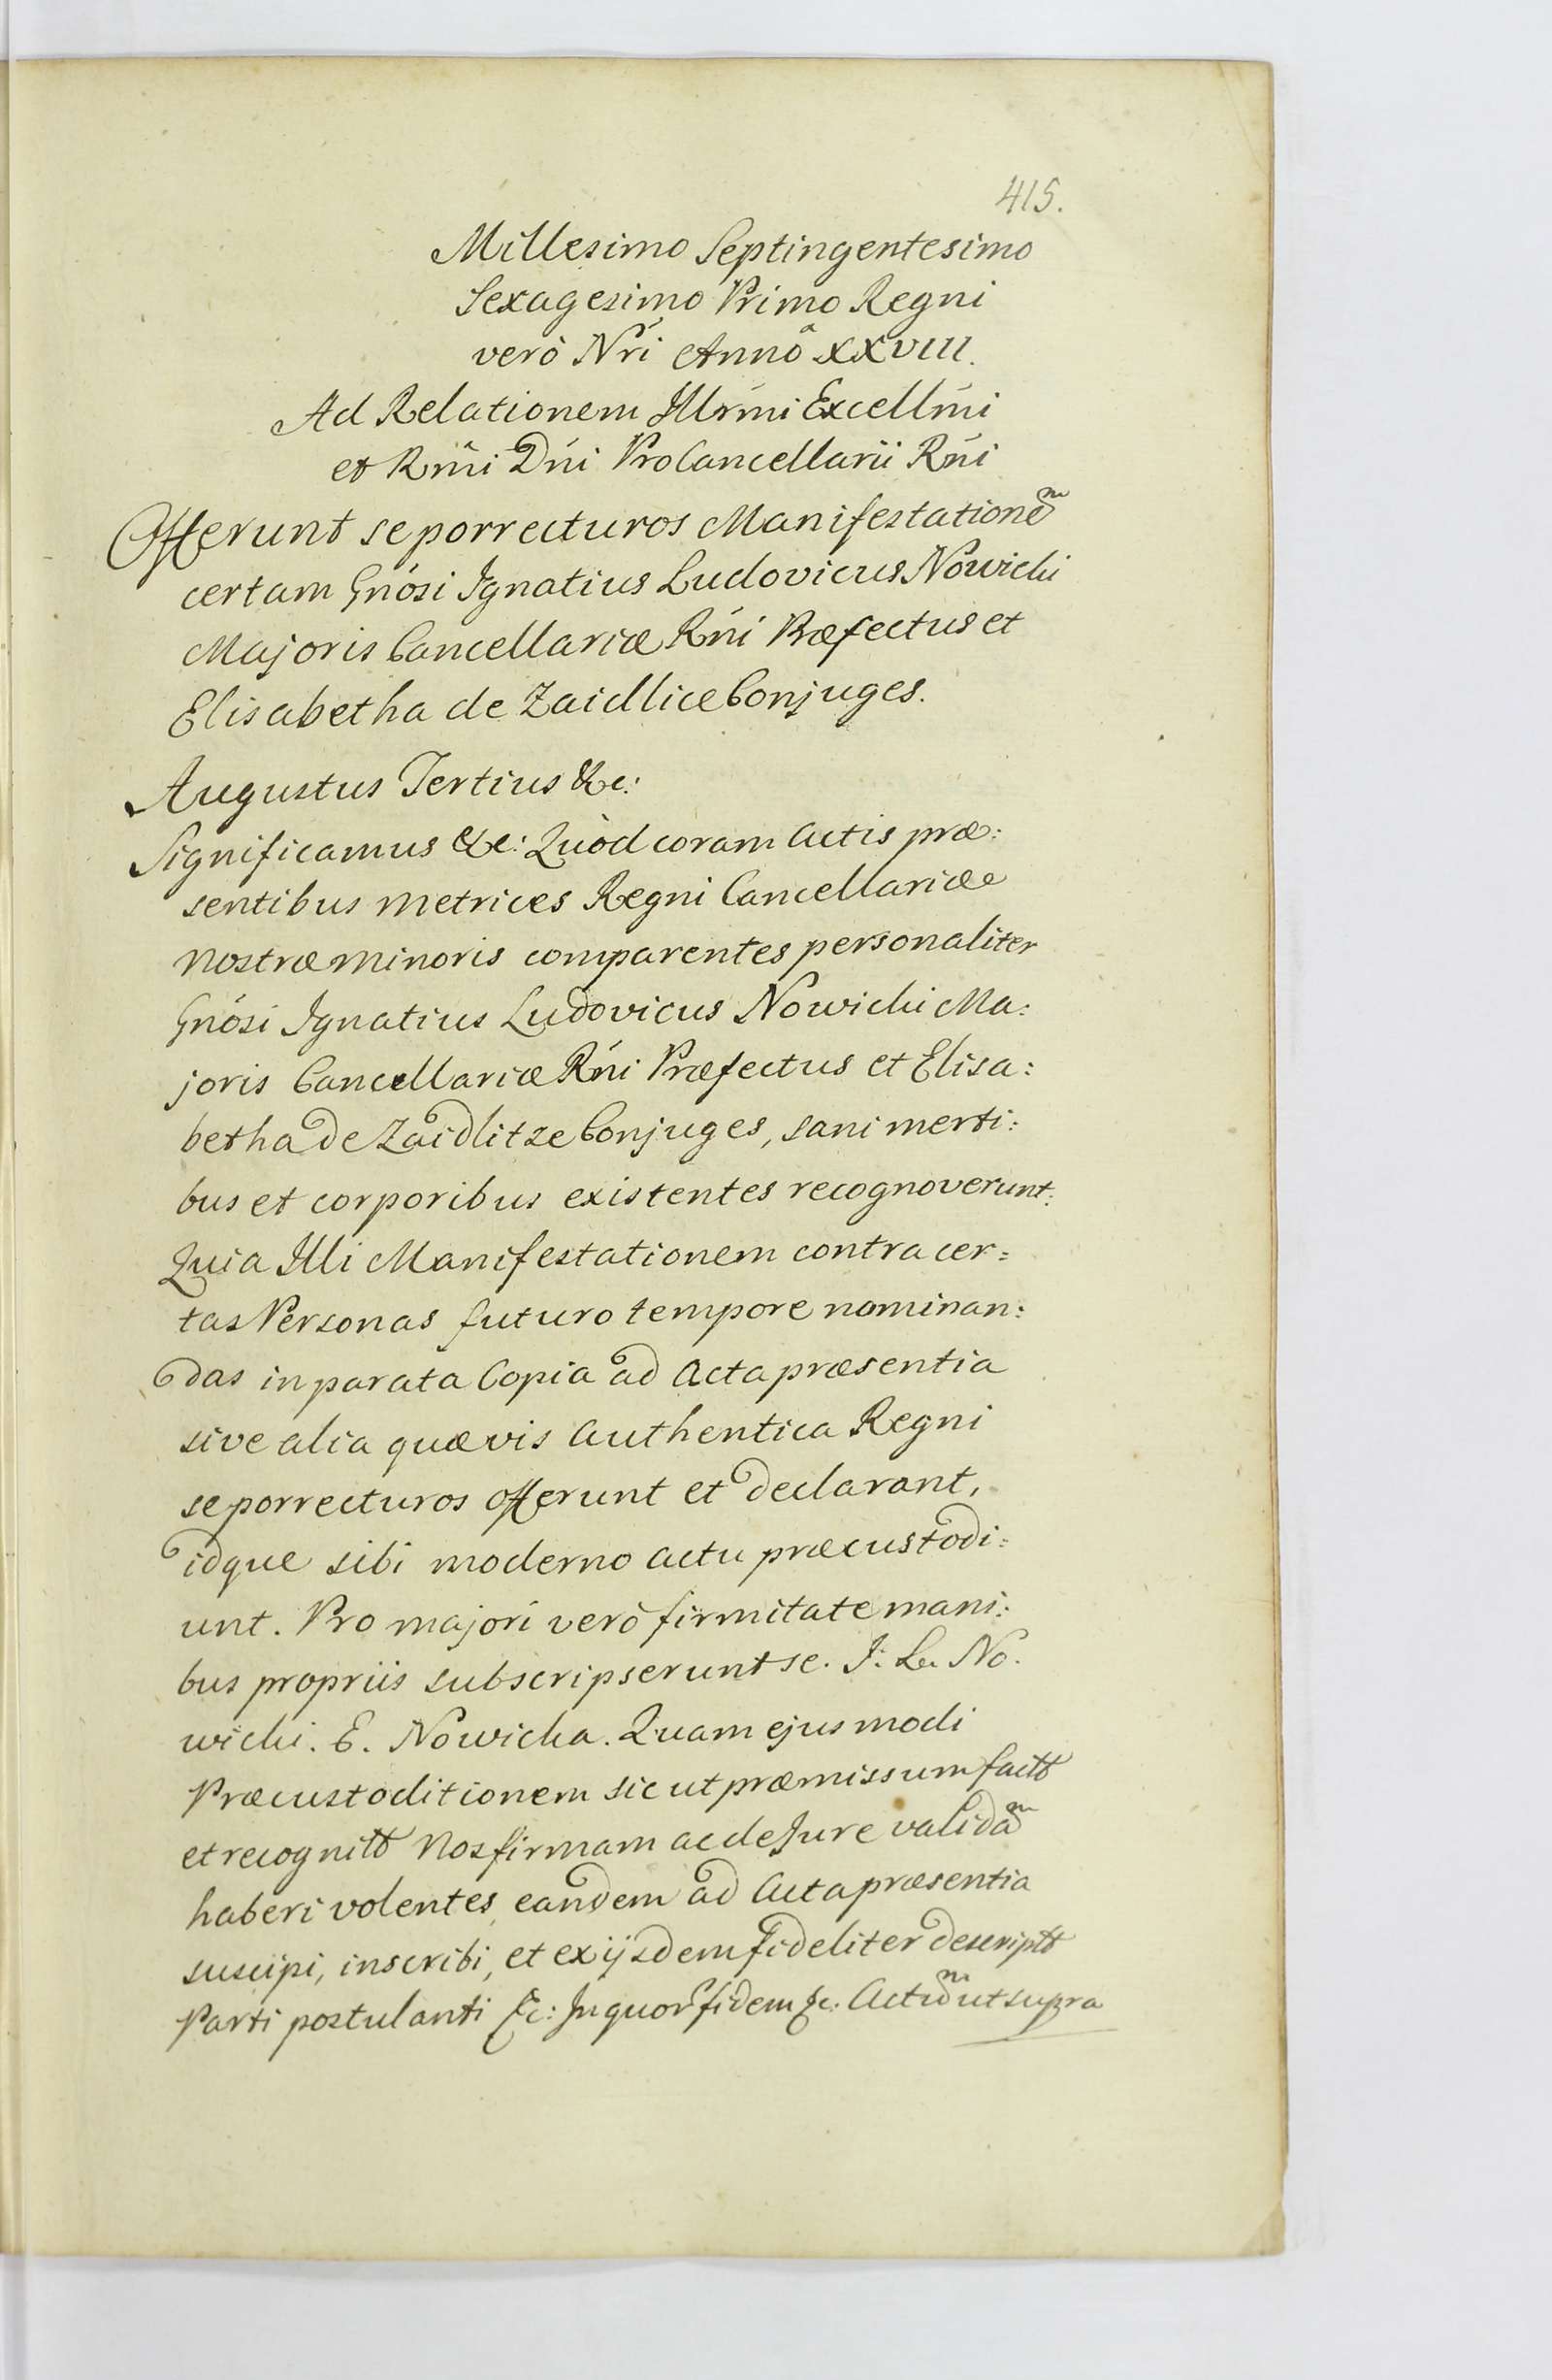 415.
Millesimo Septingentesimo
Sexagesimo Primo Regni
verò Nri Annô XXVIII.
Ad Relationem Illrmi Excellmi
et Rmi Dni ProCancellarii Rni
Offerunt se porrecturos Manifestationem
certam Gnosi Ignatius Ludovicus Nowicki
Majoris Cancellariæ Rni Præfectus et
Elisabetha de Zaidlice Conjuges.
Augustus Tertius &c:
Significamus &c: Quòd coram Actis præ:
sentibus Metrices Regni Cancellariæ
Nostræ Minoris comparentes personaliter
Gnosi Ignatius Ludovicus Nowicki Ma:
joris Cancellariæ Rni Præfectus et Elisa:
betha de Zaidlitze Conjuges, sani menti:
bus et corporibus existentes recognoverunt:
Quia Illi Manifestationem contra cer:
tas Personas futuro tempore nominan:
das in parata Copia ad Acta præsentia
sive alia quævis Authentica Regni
se porrecturos offerunt et declarant,
idque sibi moderno actu præcustodi:
unt. Pro majori verò firmitate mani:
bus propriis subscripserunt se. I: L. No.
wicki. E. Nowicka. Quam ejusmodi
Præcustoditionem sic ut præmissum factt
et recognitt Nos firmam ac de Jure validam
haberi volentes, eandem ad Acta præsentia
suscipi, inscribi, et ex ijsdem fideliter descriptt
Parti postulanti &c: In quor fidem &c. Actum ut supra